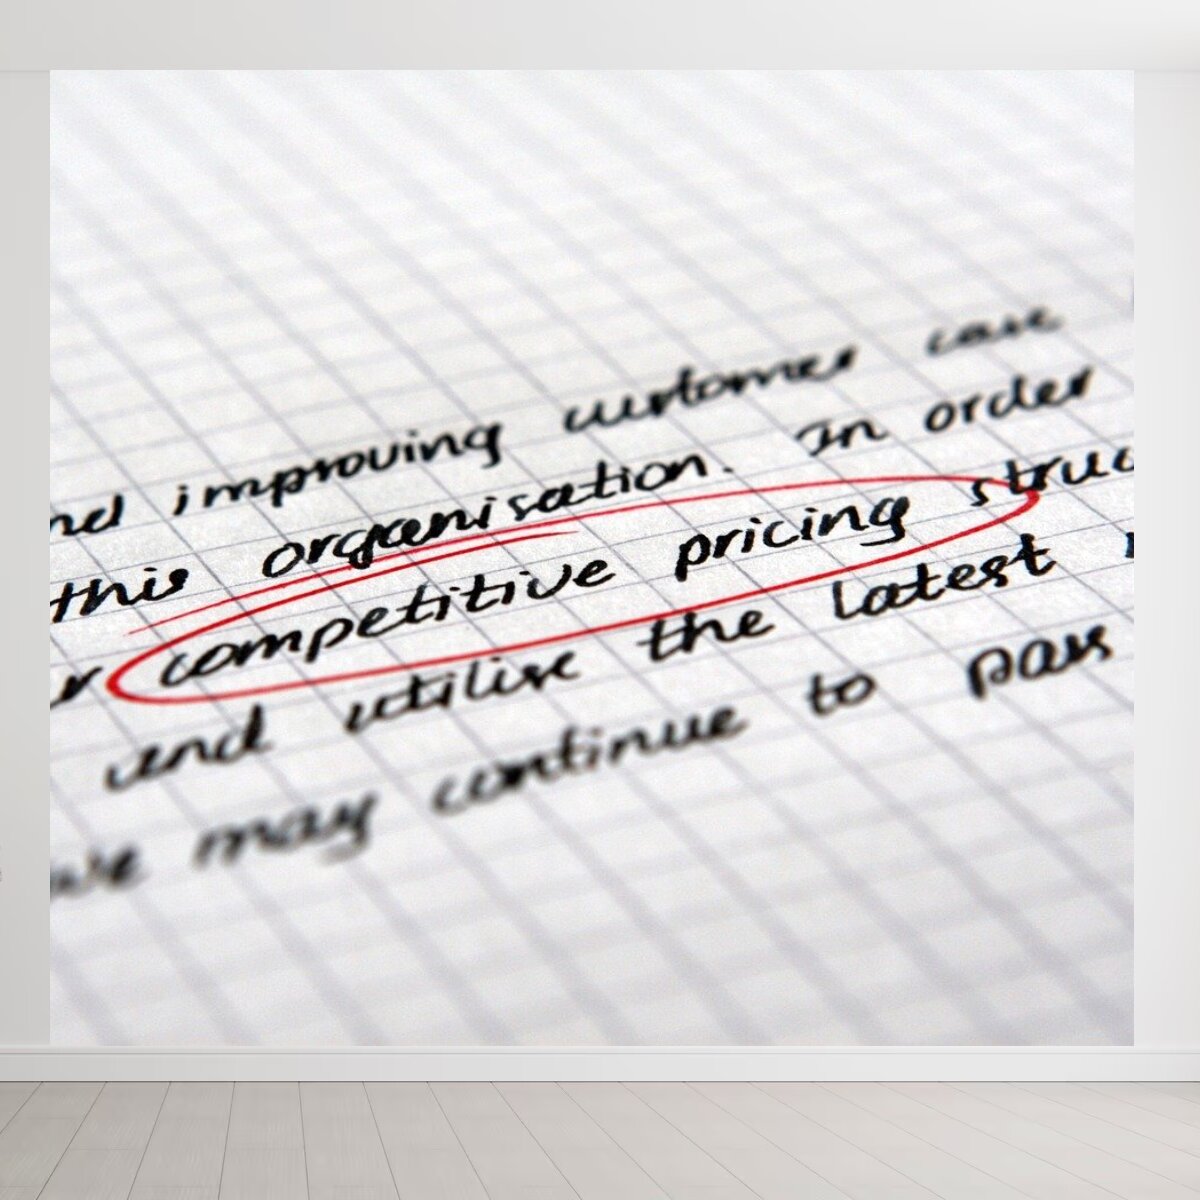 improving customer care
this organisation. In order
competitive pricing struc
and utilise the latest
we may continue to pass